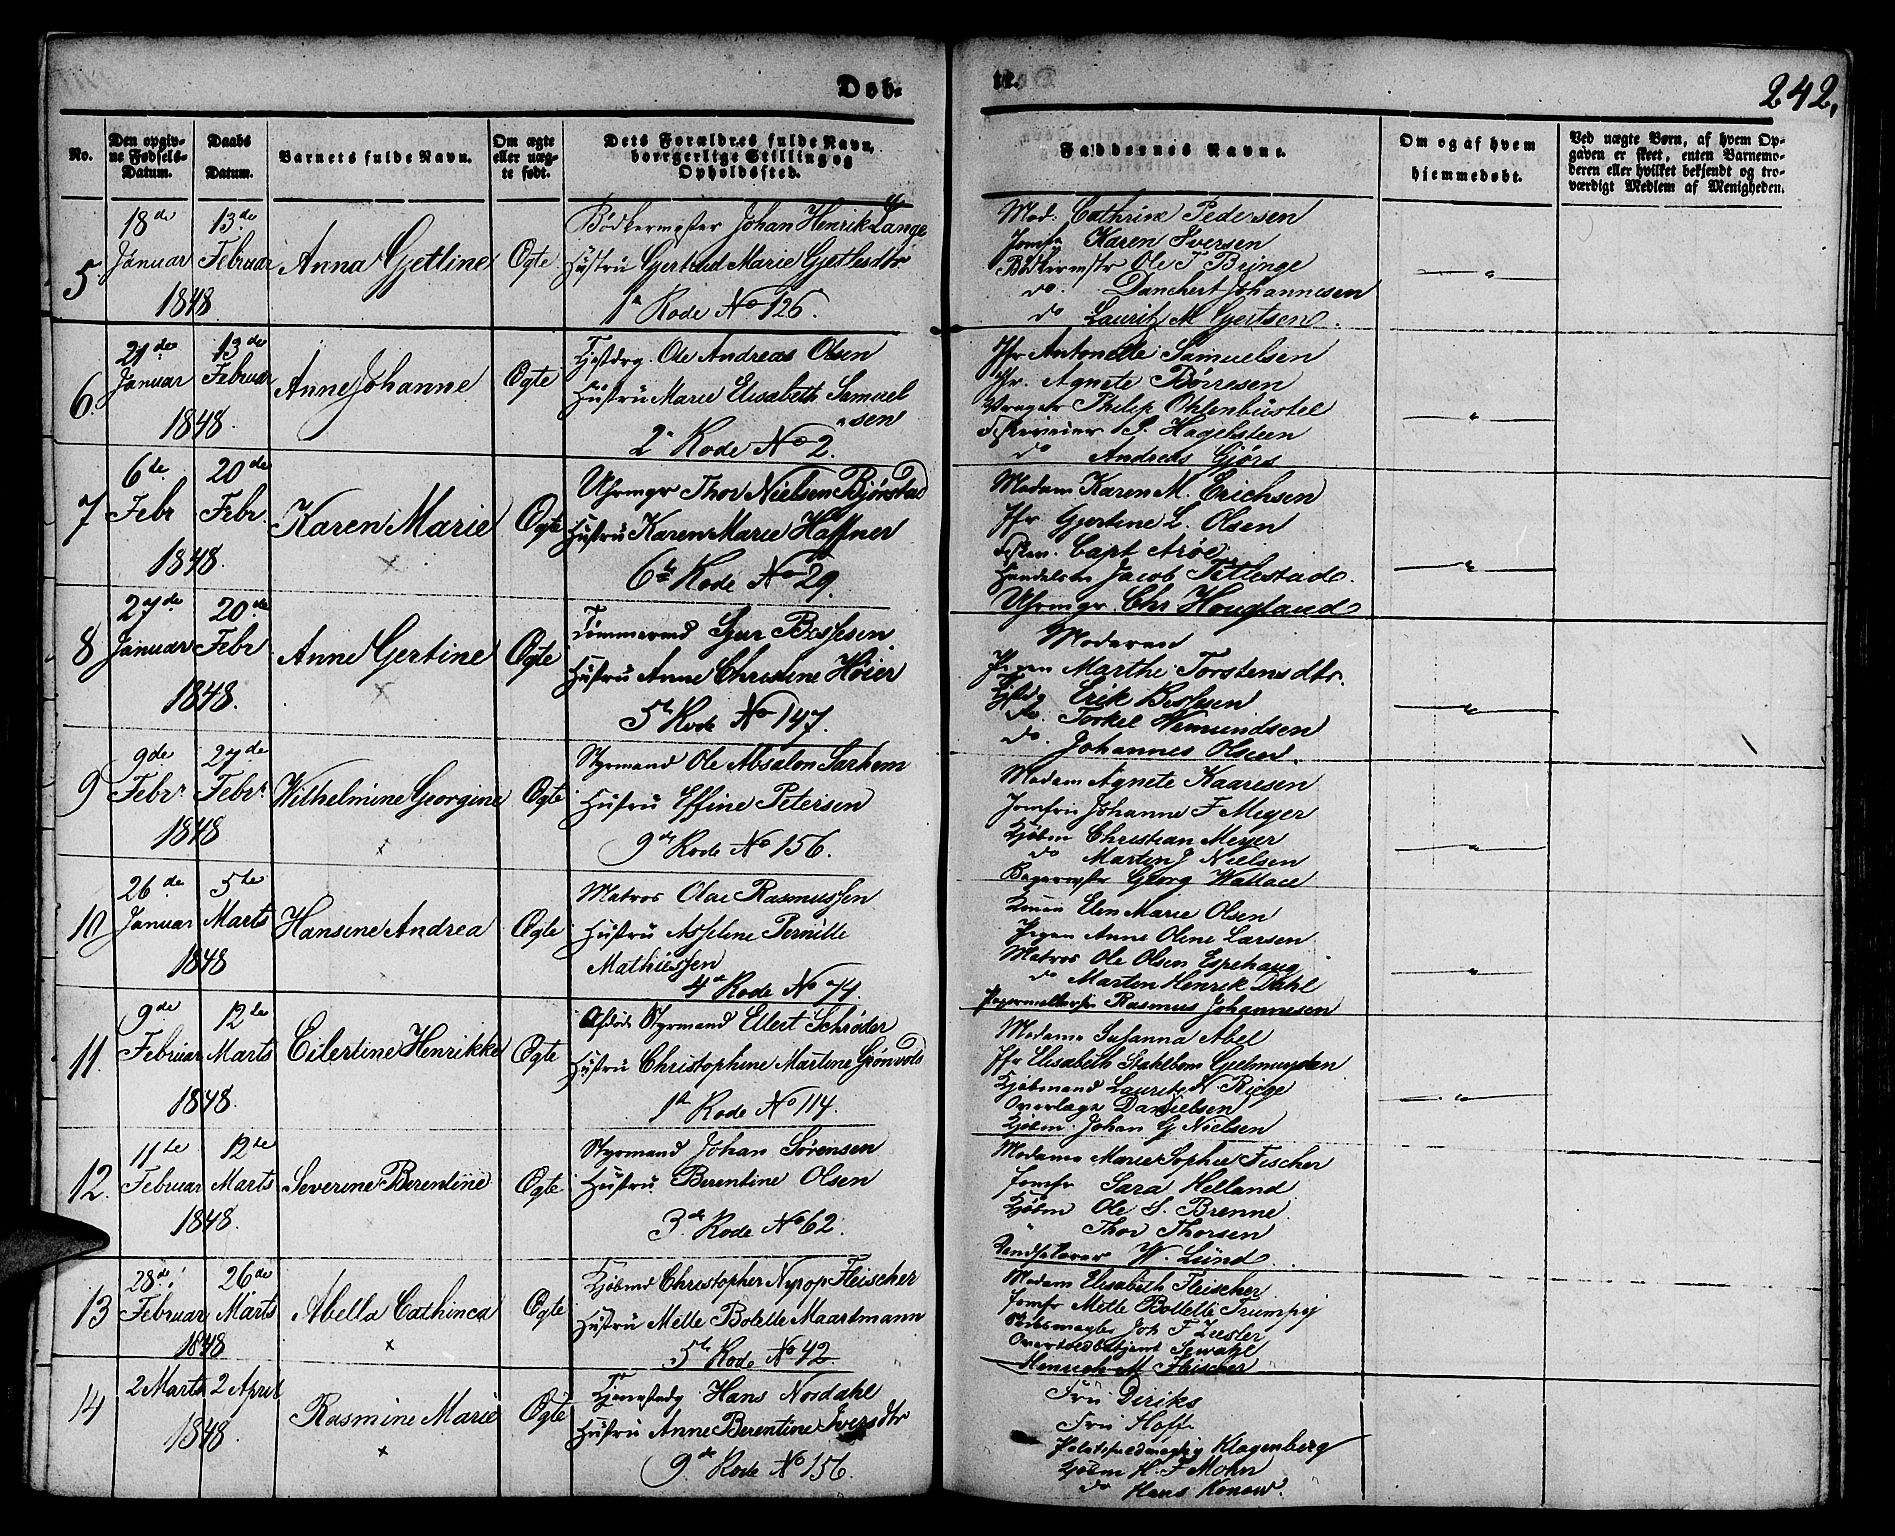 Døb-
te.
242.
No.
Den opgiv-
ne Fødsels-
Datum.
Daabs
Datum.
Barnets fulde Navn.
Om ægte
eller uæg-
te født.
Dets Forældres fulde Navn,
borgerlige Stilling og
Opholdssted.
Faddernes Navne.
Om og af hvem
hjemmedøbt.
Ved uægte Børn, af hvem Op-
gaven er skeet, enten Barnemo-
deren eller hvilket bekjendt og tro-
værdigt Medlem af Menigheden.
5
18de
Januar
1848
13de
Februar
Anna Gjetline
Ægte
Bødkermester Johan Henrik Lange
Hustru Gertrud Marie Gjetlesdtr
1te Rode No 126.
Mad: Cathrine Pedersen
Jomfr Karen Iversen
Bødkermstr Ole T Bringe
do. Danchert Johannesen
do Lauritz M Gjertsen.
6.
21de
Januar
1848.
13de
Februar
Anne Johanne
Ægte
Ole Andreas Olsen
Hustru Marie Elisabeth Samuel
sen
2 Rode No 2.
Jfr Antonette Samuelsen
Jfr. Agnete Børresen
Vrager Philip Ohlenbüstel
S. Hagelsteen
do Andreas Gjørs
7
6te
Febr
1848.
20de
Febr.
Karen Marie
Ægte
Uhrmgr Thor Nielsen Bjørstad
Hustru Karen Marie Haffner
6te Rode No 29.
Madam Karen M. Erichsen
Jfr Gjertine L. Olsen
Capt Arøe
Handelsm Jacob Titlestad.
Uhrmgr. Chr Hougland
8
27de
Januar
1848.
20de
Febr
Anne Gertine
Ægte
Tømmermd Sjur Bessesen
Hustru Anne Christine Høier
5te Rode No 147.
Moderen
Pigen Marthe Torstensdtr.
Erik Bessesen
do. Torkel Vemundsen
do. Johannes Olsen.
9
9de
Febr.
1848
27de
Febr.
Wilhelmine Georgine
Ægte
Styrmand Ole Absalon Sarhem
Hustru Effine Petersen
9de Rode No 156.
Madam Agnete Kaaresen
Jomfru Johanne F Meyer
Kjøbm Christian Meyer
do Martin J Nielsen
Bagermstr Georg Wallace
10
26de
Januar
1848
5te
Marts
Hansine Andrea
Ægte
Matros Olai Rasmussen
Hustru Asseline Pernille
Mathiessen
4de Rode No 74.
Konen Elen Marie Olsen
Pigen Anne Oline Larsen
Matros Ole Olsen Espehaug
do Marten Henrik Dahl
Rasmus Johannesen
11.
9de
Februar
1848.
12te
Marts
Eilertine Henrikke
Ægte
Afdøde Styrmand Ellert Schrøder
Hustru Christophine Martine Grønvold
1te Rode No 114.
Madame Susanna Abel
Jfr Elisabeth Stahlbom Geelmuyden
Kjøbmand Lauritz N. Riege
Overlæge Danielsen
Kjøbm. Johan G Nielsen
12.
11te
Februar
1848.
12te
Marts
Severine Berentine
Ægte
Styrmand Johan Sørensen
Hustru Berentine Olsen
3de Rode No 62.
Madame Marie Sophie Fischer
Jomfr Sara Helland
Kjøbm Ole S. Brenne
" Thor Thorsen
W. Lund
13
28de
Februar
1848
26de
Marts
Abella Cathinca
Ægte
Kjøbmd Christopher Nyrop Fleischer
Hustru Mette Bolette Maartmann
5te Rode No 42
Madam Elisabeth Fleischer
Jomfr Mette Bollette Trumpy
Skibsmægler Joh F Ziesler
Overtoldbetjent Sewahl
Henrich M Fleischer
14
2 Marts
1848
2 April
Rasmine Marie
Ægte
Hans Nordahl
Hustru Anne Berentine Iversdtr
9de Rode No 156.
Fru Diriks
Fru Hoff
Klagenberg
Kjøbm H. F Mohn
do Hans Konow.